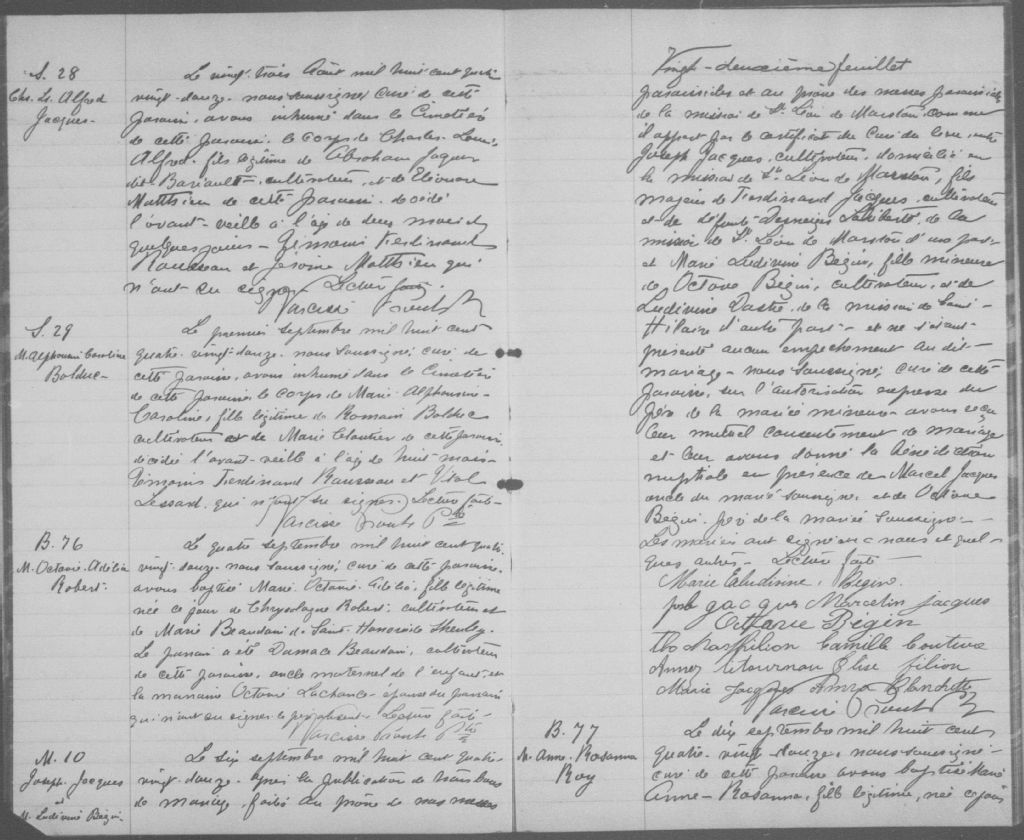 S. 28
Chs. Ls. Alfred
Jacques-
Le vingt-trois Août mil huit cent quatre
vingt-douze-nous soussigné curé de cette
paroisse, avons inhumé dans le Cimetière
de cette paroisse, le corps de Charles-Louis
Alfred, fils légitime de Abraham Jacques
dit Bariault, cultivateur, et de Eléonore
Matthieu de cette paroisse, décédé
l'avant-veille à l'âge de deux mois et
quelques jours- Témoins Ferdinand
Rousseau et Jérôme Matthieu qui
n'ont su signer. Lecture faite.
Narcisse Proulx
S. 29
M. Alphonsine Caroline
Bolduc-
Le premier septembre mil huit cent
quatre-vingt-douze, nous soussigné, curé de
cette paroisse, avons inhumé dans le Cimetière
de cette paroisse, le corps de Marie-Alphonsine-
Caroline, fille légitime de Romain Bolduc
cultivateur et de Marie Cloutier de cette paroisse
décédée l'avant-veille à l'âge de huit mois-
Témoins Ferdinand Rousseau et Vital
Lessard qui n'ont su signer. Lecture faite-
Narcisse Proulx Ptre
B. 76
M. Octavie-Adélia
Robert.
Le quatre septembre mil huit cent quatre
vingt-douze-nous soussigné curé de cette paroisse
avons baptisé Marie Octavie-Adélia, fille légitime
née ce jour de Chrysologue Robert, cultivateur et
de Marie Beaudoin de Saint-Honoré de Shenley.
Le parrain a été Damase Beaudoin, cultivateur
de cette paroisse, oncle maternel de l'enfant et
la marraine Octavie Lachance, épouse du parrain
qui n'ont su signer. le père absent. Lecture faite-
Narcisse Proulx Ptre
M. 10
Joseph Jacques
&
M. Ludivine Bégin.
Le dix septembre mil huit cent quatre-
vingt-douze-après la publication de trois bans
de mariage faite au prône de nos messes
Vingt-deuxième feuillet
paroissiales et au prône des messes paroissiales
de la mission de St. Léon de Marston comme
il appert par le certificat du Curé du lieu, entre
Joseph Jacques, cultivateur, domicilié en
la mission de St. Léon de Marston, fils
majeur de Ferdinand Jacques, cultivateur
et de défunte Desneiges Laliberté, de la
mission de St. Léon de Marston d'une part-
et Marie Ludivine Bégin, fille mineure
de Octave Bégin, cultivateur, et de
Ludivine de la mission de Saint-
Hilaire d'autre part- et ne s'étant
présenté aucun empêchement au dit-
mariage-nous soussigné, curé de cette
paroisse, sur l'autorisation expresse du
père de la mariée mineure avons reçu
leur mutuel consentement de mariage
et leur avons donné la bénédiction
nuptiale en présence de Marcel Jacques
oncle du marié soussigné, et de Octave
Bégin, père de la mariée soussigné.-
Les mariés ont signé avec nous et quel-
ques autres- Lecture faite
Marie Bégin.
Jacques Marcelin Jacques
Octave Bégin
Filion Camille Couture
Létourneau Elise Filion
Marie Jacques Blanchette
Narcisse Proulx
B. 77
M. Anne-Rosanna
Roy
Le dix septembre mil huit cent
quatre-vingt-douze, nous soussigné
curé de cette paroisse avons baptisé Marie
Anne-Rosanna, fille légitime, née ce jour